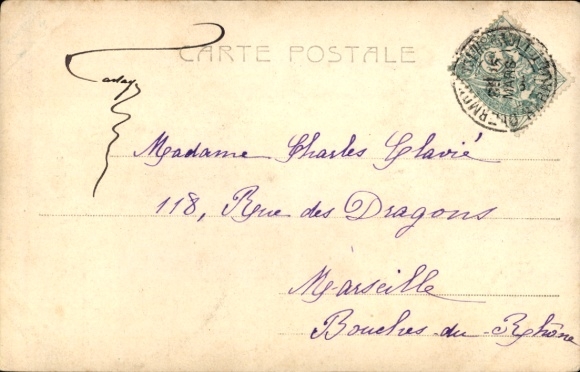 CARTE POSTALE
Madame Charles Clavié
118, Rue des Dragons
Marseille
Bouches-du-Rhône
MARS